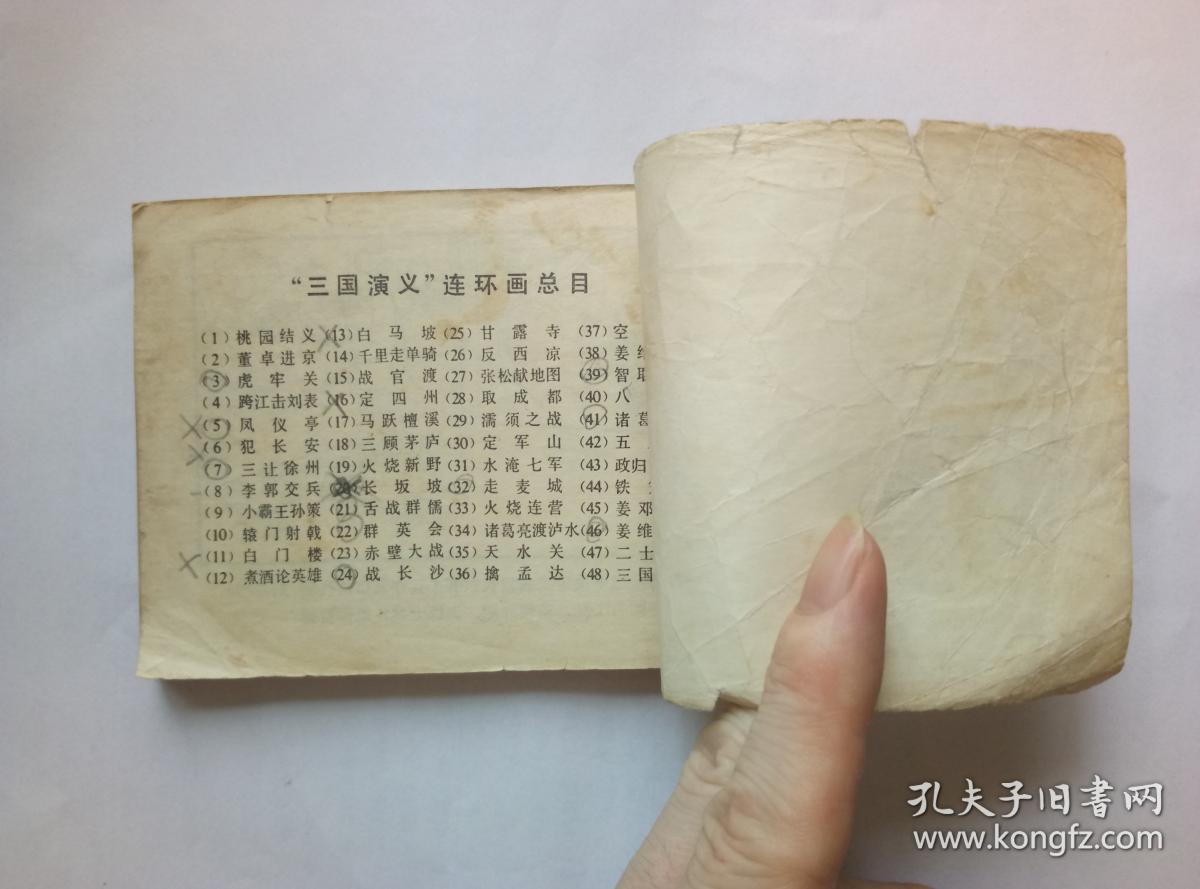 “三国演义”连环画总目
(1) 桃园结义 (13) 白马坡 (25) 甘露寺 (37) 空
(2) 董卓进京 (14) 千里走单骑 (26) 反西凉 (38) 姜
(3) 虎牢关 (15) 战官渡 (27) 张松献地图 (39) 智取
(4) 跨江击刘表 (16) 定四州 (28) 取成都 (40) 八
(5) 凤仪亭 (17) 马跃檀溪 (29) 濡须之战 (41) 诸葛
(6) 犯长安 (18) 三顾茅庐 (30) 定军山 (42) 五
(7) 三让徐州 (19) 火烧新野 (31) 水淹七军 (43) 政归
(8) 李郭交兵 (20) 长坂坡 (32) 走麦城 (44) 铁
(9) 小霸王孙策 (21) 舌战群儒 (33) 火烧连营 (45) 姜邓
(10) 辕门射戟 (22) 群英会 (34) 诸葛亮渡泸水 (46) 姜维
(11) 白门楼 (23) 赤壁大战 (35) 天水关 (47) 二士
(12) 煮酒论英雄 (24) 战长沙 (36) 擒孟达 (48) 三国
孔夫子旧書网
www.kongfz.com